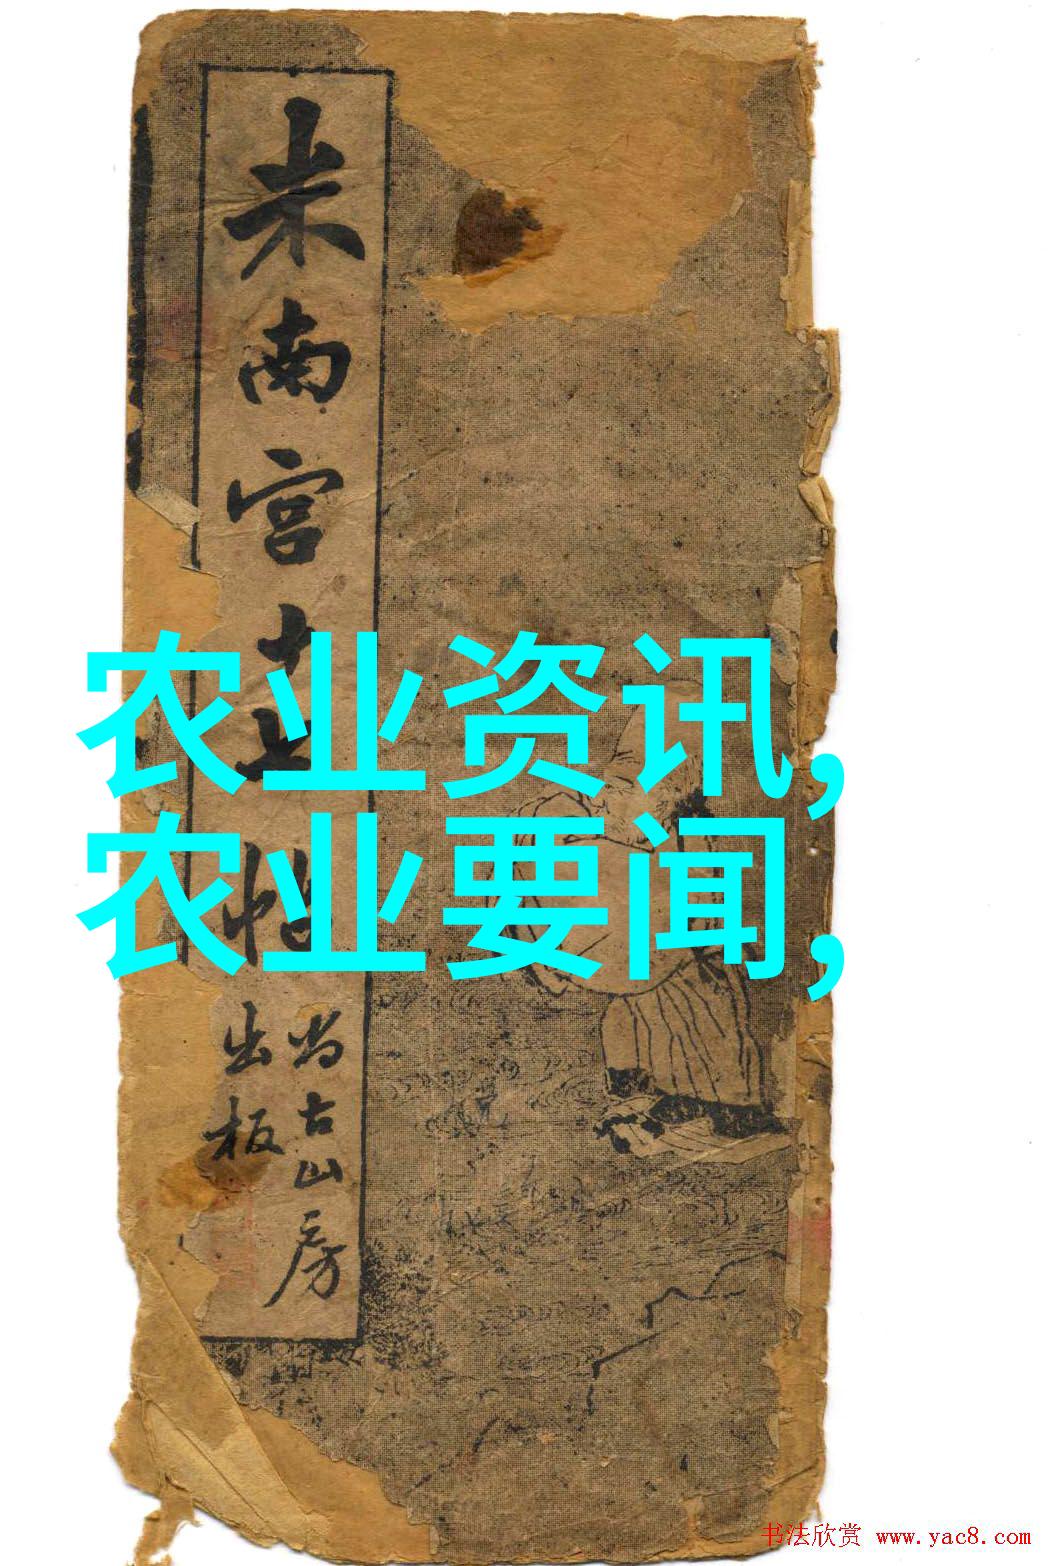 米南宫十七帖
尚古山房
出板
农业资讯,
农业要闻,
书法欣赏 www.yac8.com